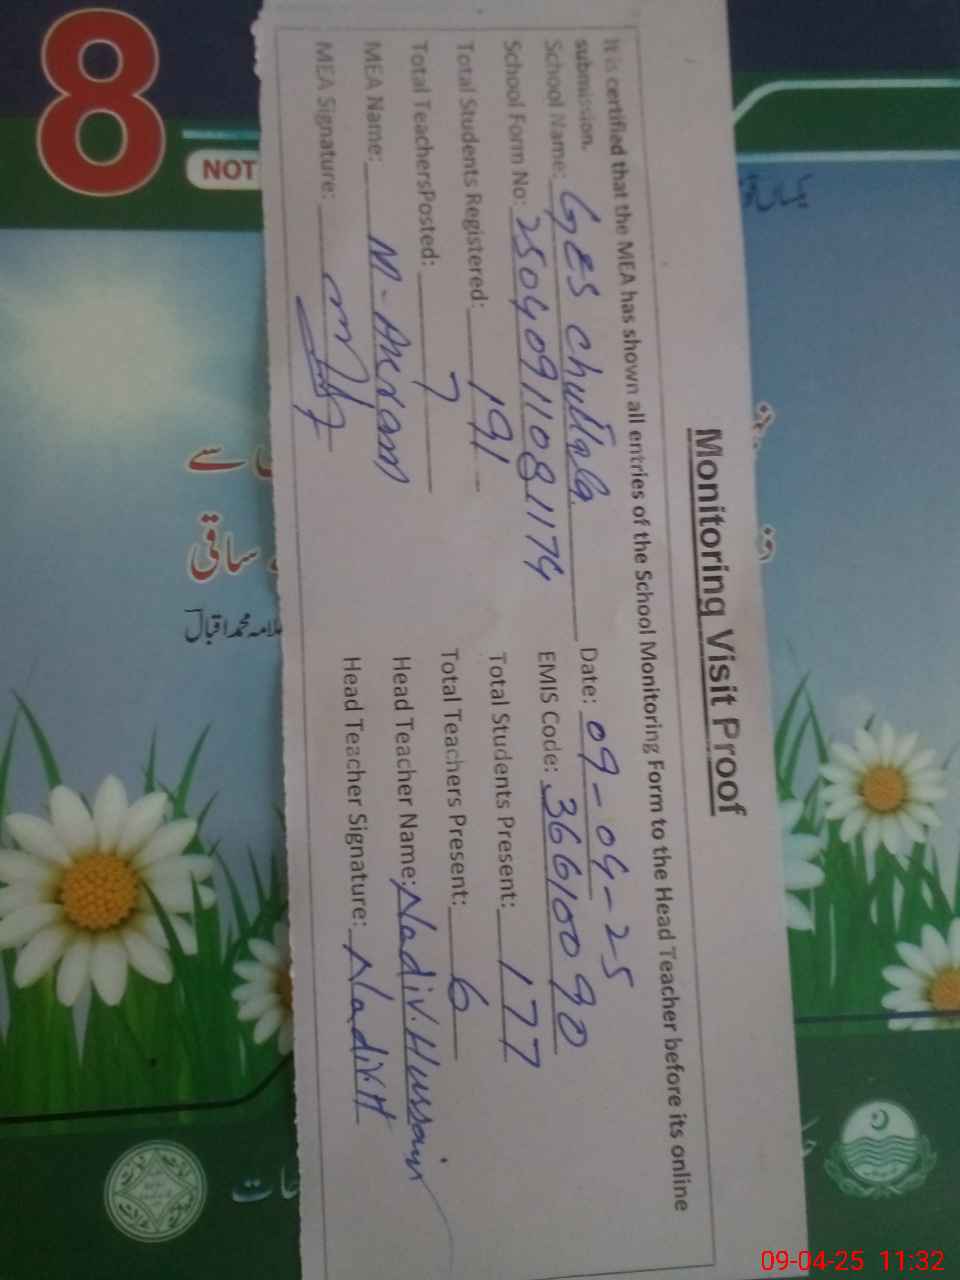 Monitoring Visit Proof
It is certified that the MEA has shown all entries of the School Monitoring Form to the Head Teacher before its online
submission.
School Name: GES Chullala Date: 09-04-25
School Form No: 25040911081174 EMIS Code: 36610090
Total Students Registered: 191 Total Students Present: 177
Total TeachersPosted: 7 Total Teachers Present: 6
MEA Name: M-Akram Head Teacher Name: Nadir.Hussain
MEA Signature: Head Teacher Signature: Nadir.H
8
NOT
سے
ساقی
علامہ محمد اقبال
یکساں قو
09-04-25 11:32